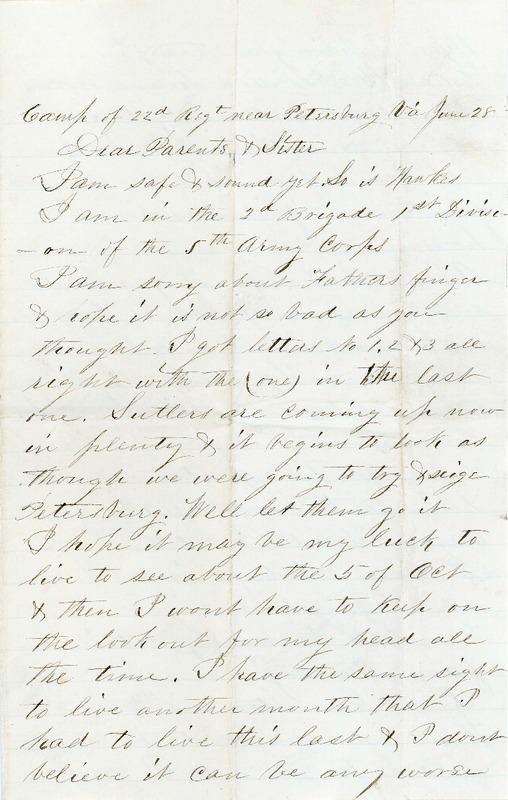 Camp of 22d Regt near Petersburg Va June 28
Dear Parents & Sister
I am safe & sound yet So is Hawkes
I am in the 2d Brigade 1st Divisi-
-on- of the 5th Army Corps
I am sorry about Fathers finger
& hope it is not so bad as you
thought. I got letters No 1, 2 & 3 all
right with the (one) in the last
one. Sutlers are coming up now
in plenty & it begins to look as
though we were going to try & seige
Petersburg. Well let them go it
I hope it may be my luck to
live to see about the 5 of Oct
& then I wont have to keep on
the look out for my head all
the time. I have the same sight
to live another month that I
had to live this last & I dont
believe it can be any worse